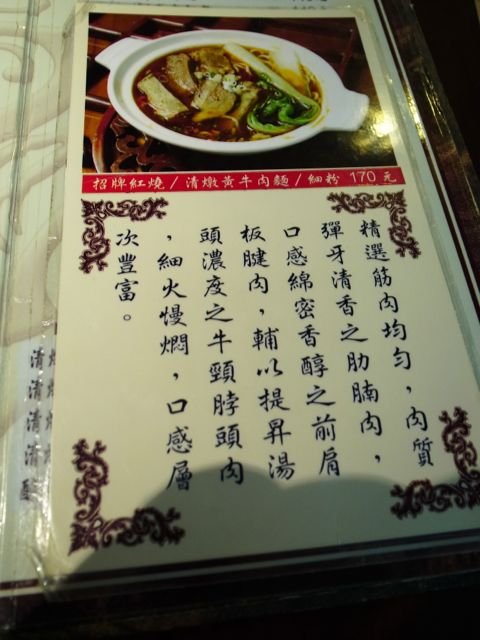 招牌紅燒/清燉黃牛肉麵/細粉 170元
精選筋肉均勻,肉質
彈牙清香之肋腩肉,
口感綿密香醇之前肩
板腱肉,輔以提昇湯
頭濃度之牛頸脖頭肉
,細火慢燜,口感層
次豐富。
清
清
清
清